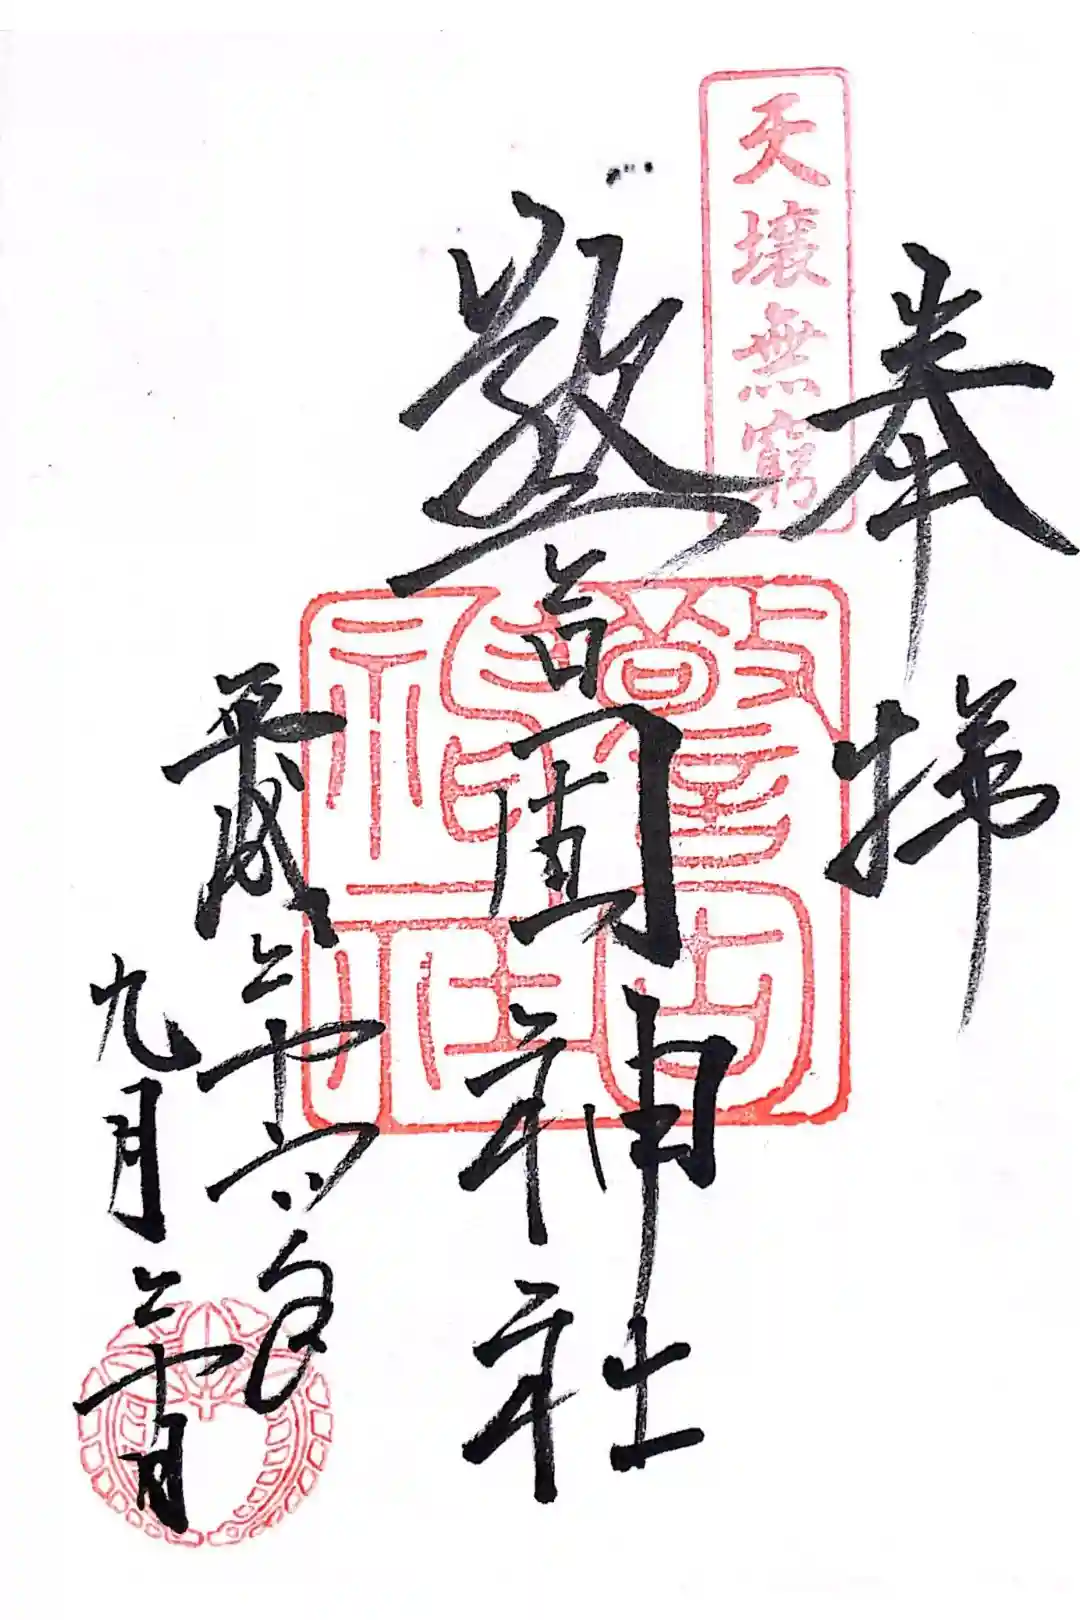 天壤無窮
奉拝
警固神社
平成二十六年
九月二十日
警固神社